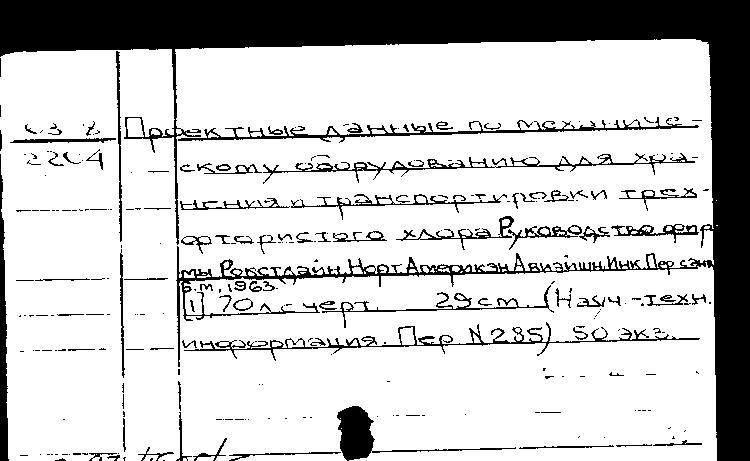 Проектные данные по механиче-
2204
скому оборудованию для хра-
нения и транспортировки трех-
фтористого хлора Руководство фир
мы Рокетдайн, Норт Америкэн Авиэйшн, Инк. Пер с англ
Б.м., 1963.
[1], 70 л с черт. 29 см. (Науч.-техн.
информация. Пер N 285) 50 экз.